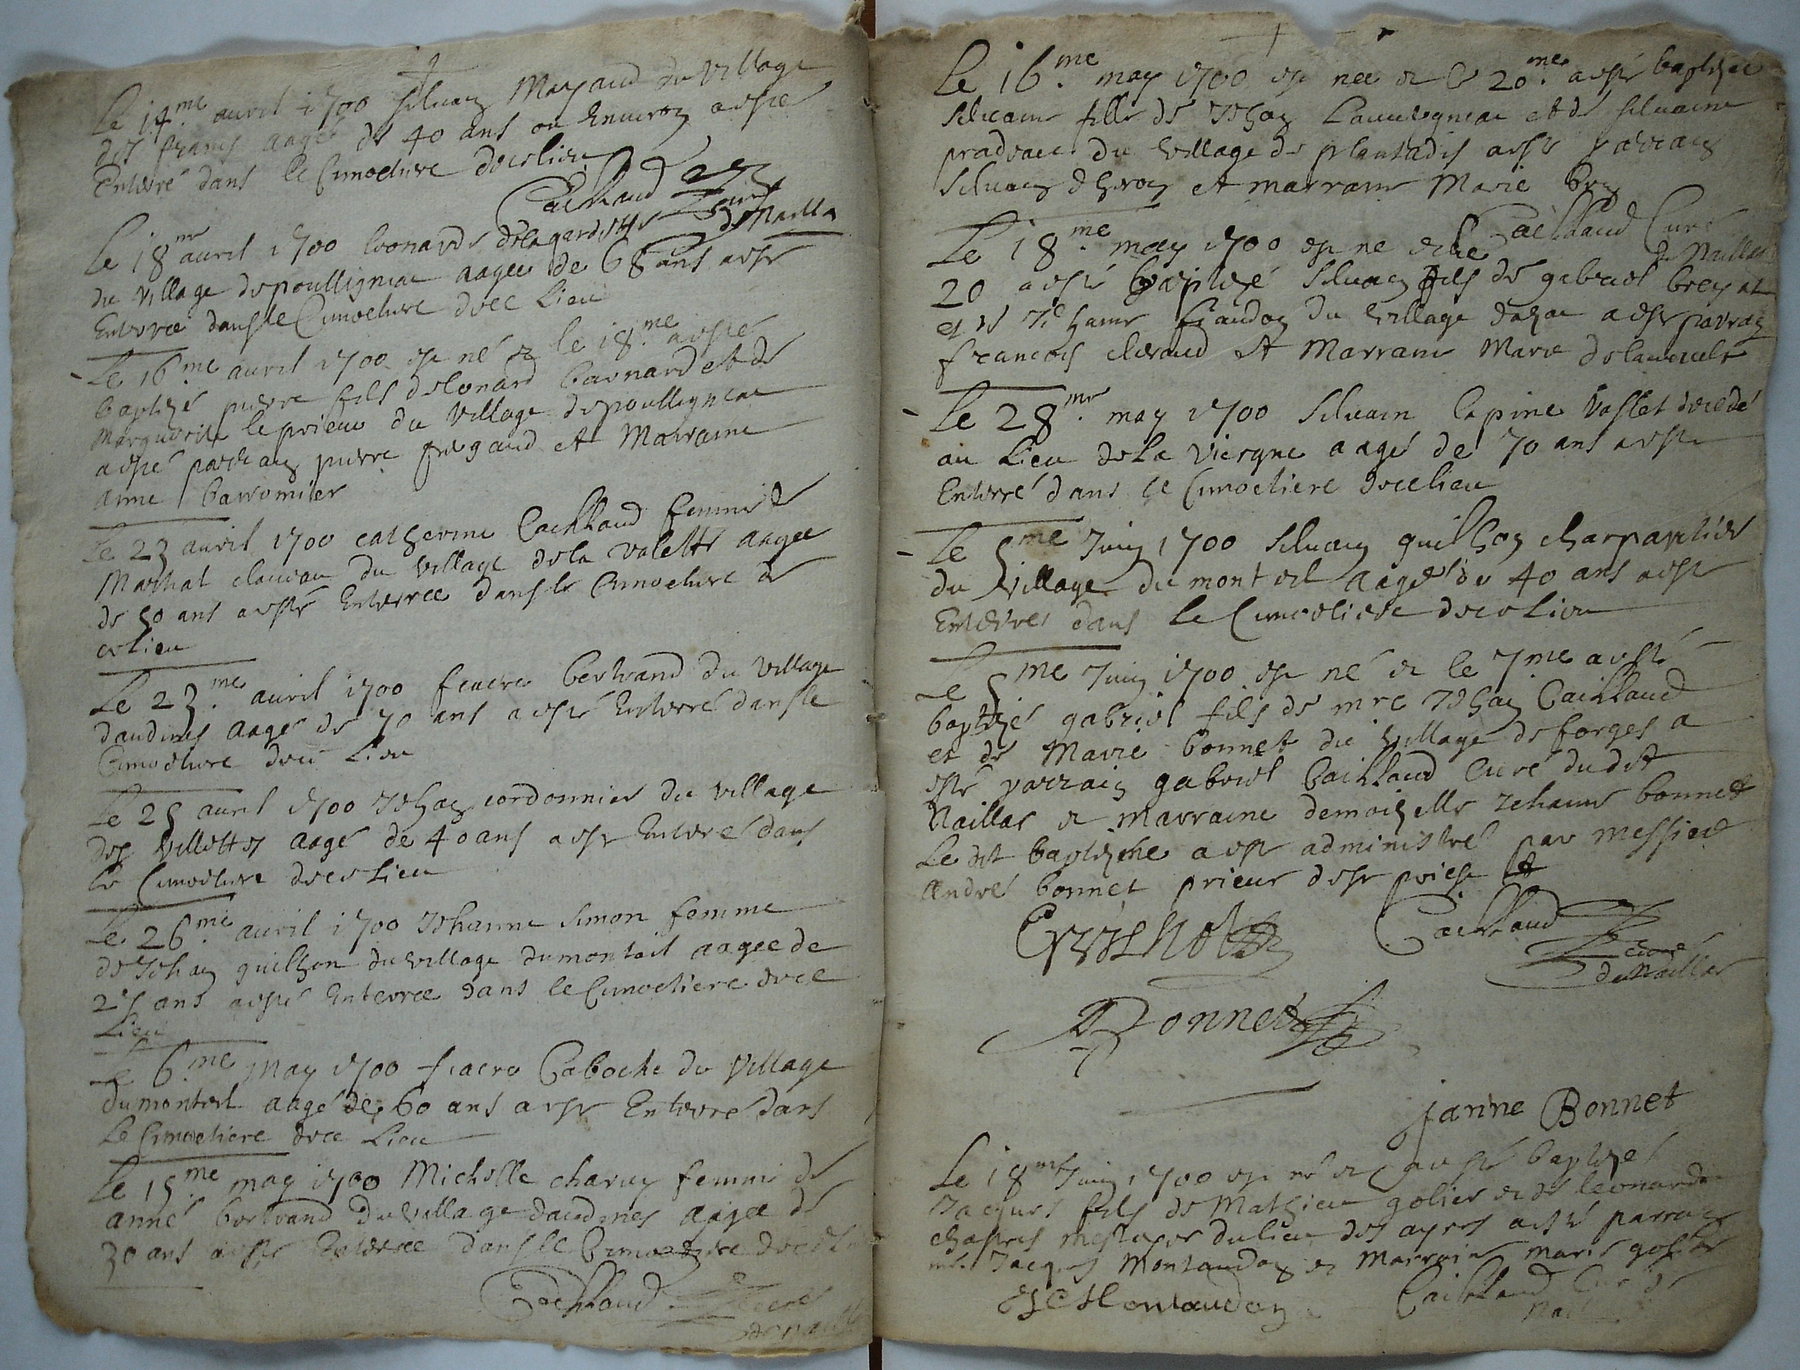 Le 14.me avril 1700 siluain Mayaud du village
des francs aagé de 40 ans ou Enuiron a esté
Enterré dans le Cimoetiere de ce lieu
Cailhaud
curé
de Naillat
Le 18me avril 1700 leonarde delagardette
du village depoulligniac aagee de 68 ans a esté
Enterree dans le Cimoetiere de ce Lieu
Le 16.me avril 1700 est né et le 18.me a esté
baptizé pierre fils de lonard barnard et de
Marguerite leprieur du village depoulligniac
a esté parrain pierre frigaud et Marraine
anne
Le 23 avril 1700 catherine Cailhaud femme de
Martial claueau du village dela valette aagee
de 50 ans a esté Enterree dans le Cimoetiere de
ce Lieu
Le 23.me avril 1700 fiacre bertrand du village
daudines aagé de 70 ans a esté Enterré dans le
Cimoetiere de ce Lieu
Le 25 avril 1700 Jehan cordonnier du village
des villettes aagé de 40 ans a esté Enterré dans
le Cimoetiere de ce Lieu
Le 26.me avril 1700 Jehanne simon femme
de Jehan guilhon du village dumonteil aagee de
25 ans a esté Enterree dans le Cimoetiere de ce
Lieu
Le 6.me may 1700 fiacre Caboche du village
dumonteil aagé de 60 ans a esté Enterré dans
Le Cimoetiere de ce Lieu
Le 15.me may 1700 Michelle charuy femme de
anné bertrand du village daudines aagee de
30 ans a esté Enterree dans le Cimoetiere de ce
Cailhaud curé
de naillat
Le 16.me may 1700 est nee et le 20.me a esté baptizee
Siluaine fille de Jehan Lauuergniac et de siluaine
pradeau du village de plantadis a esté parrain
Siluain et marraine Marie
Cailhaud Curé
de Naillat
Le 18.me may 1700 est né et le
20 a esté baptizé siluain fils de gabriel
et de Jehanne du village a esté parrain
francois et Marraine Marie
Le 28.me may 1700 Siluain lapine vallet decedé
au Lieu dela viergne aagé de 70 ans a esté
Enterré dans le Cimoetiere de ce lieu
Le 5me Juin 1700 siluain guilhon charpantier
du village du monteil aagé de 40 ans a esté
Enterré dans le Cimoetiere de ce Lieu
Le 5me Juin 1700 est né et le 7me a esté
baptizé gabriel fils de mre Jehan Cailhaud
et de Marie bonnet du village de forges a
esté parrain gabriel Cailhaud Curé dudit
Naillat et marraine demoizelle Jehanne bonnet
Le dit baptizme a esté administré par messire
André bonnet prieur
Cailhaud
curé
de Naillat
Bonnet
janne Bonnet
Le 18me Juin 1700 est né et a esté baptizé
Jacques fils de Mathieu golier et de leonarde
chapus mestayer dulieu des ayres a esté parrain
mr. Jacques Montaudon et Marraine marie
Montaudon
Cailhaud Curé de
Nail